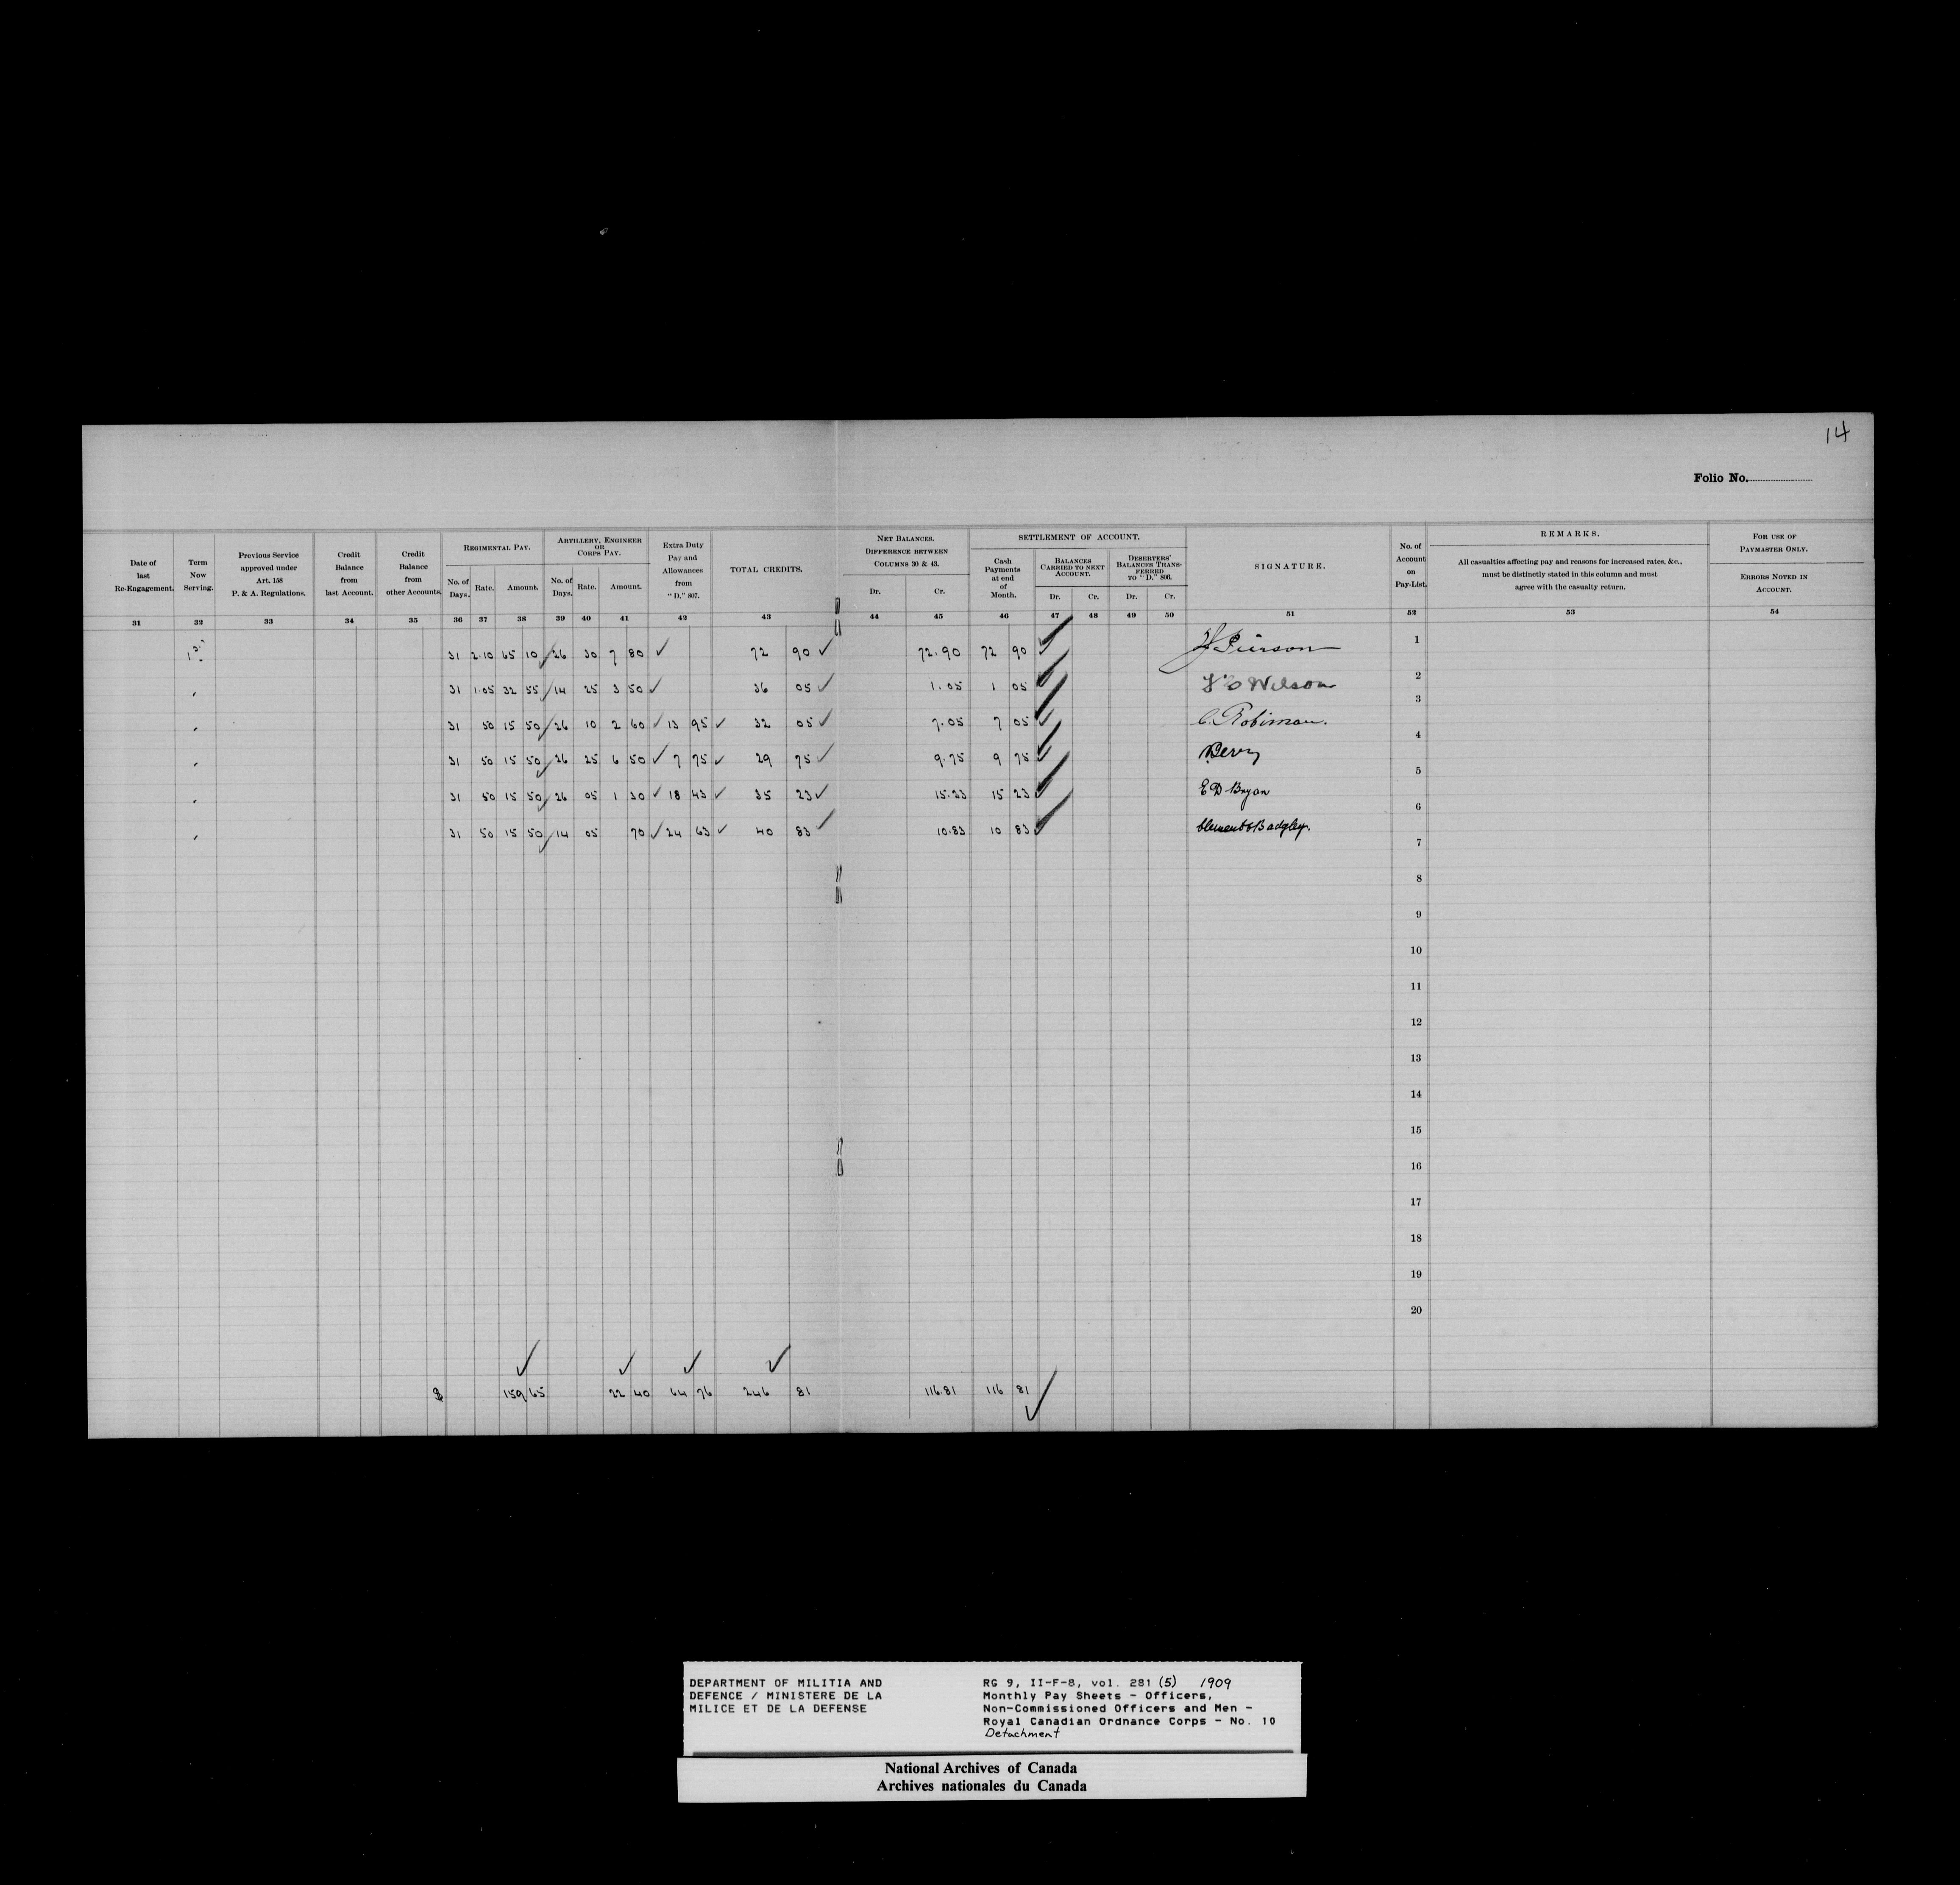 14
Folio No.
Date of last Re-Engagement.
Term Now Serving.
Previous Service approved under Art. 158 P. & A. Regulations.
Credit Balance from last Account.
Credit Balance from other Accounts.
REGIMENTAL PAY.
No. of Days.
Rate.
Amount.
ARTILLERY, ENGINEER OR CORPS PAY.
No. of Days.
Rate.
Amount.
Extra Duty Pay and Allowances from "D," 807.
TOTAL CREDITS.
NET BALANCES. DIFFERENCE BETWEEN COLUMNS 30 & 43.
Dr. Cr.
SETTLEMENT OF ACCOUNT.
Cash Payments at end of Month.
BALANCES CARRIED TO NEXT ACCOUNT.
Dr. Cr.
DESERTERS' BALANCES TRANSFERRED TO "D," 806.
Dr. Cr.
SIGNATURE.
No. of Account on Pay-List.
REMARKS.
All casualties affecting pay and reasons for increased rates, &c., must be distinctly stated in this column and must agree with the casualty return.
FOR USE OF PAYMASTER ONLY.
ERRORS NOTED IN ACCOUNT.
31 32 33 34 35 36 37 38 39 40 41 42 43 44 45 46 47 48 49 50 51 52 53 54
31 2.10 65 10 26 30 7 80 72 90 72.90 72 90 Pierson 1
31 1.05 32 55 14 25 3 50 36 05 1.05 1 05 Wilson 2
31 50 15 50 26 10 2 60 13 95 32 05 7.05 7 05 C. Robinson. 3
31 50 15 50 26 25 6 50 7 75 29 75 9.75 9 75 Berry 4
31 50 15 50 26 05 1 30 18 43 35 23 15.23 15 23 E D Bryon 5
31 50 15 50 14 05 70 24 63 40 83 10.83 10 83 Clement Badgley. 6
7
8
9
10
11
12
13
14
15
16
17
18
19
20
$ 159 65 22 40 64 76 246 81 116.81 116 81
DEPARTMENT OF MILITIA AND
DEFENCE / MINISTERE DE LA
MILICE ET DE LA DEFENSE
RG 9, II-F-8, vol. 281 (5) 1909
Monthly Pay Sheets - Officers,
Non-Commissioned Officers and Men -
Royal Canadian Ordnance Corps - No. 10
Detachment
National Archives of Canada
Archives nationales du Canada